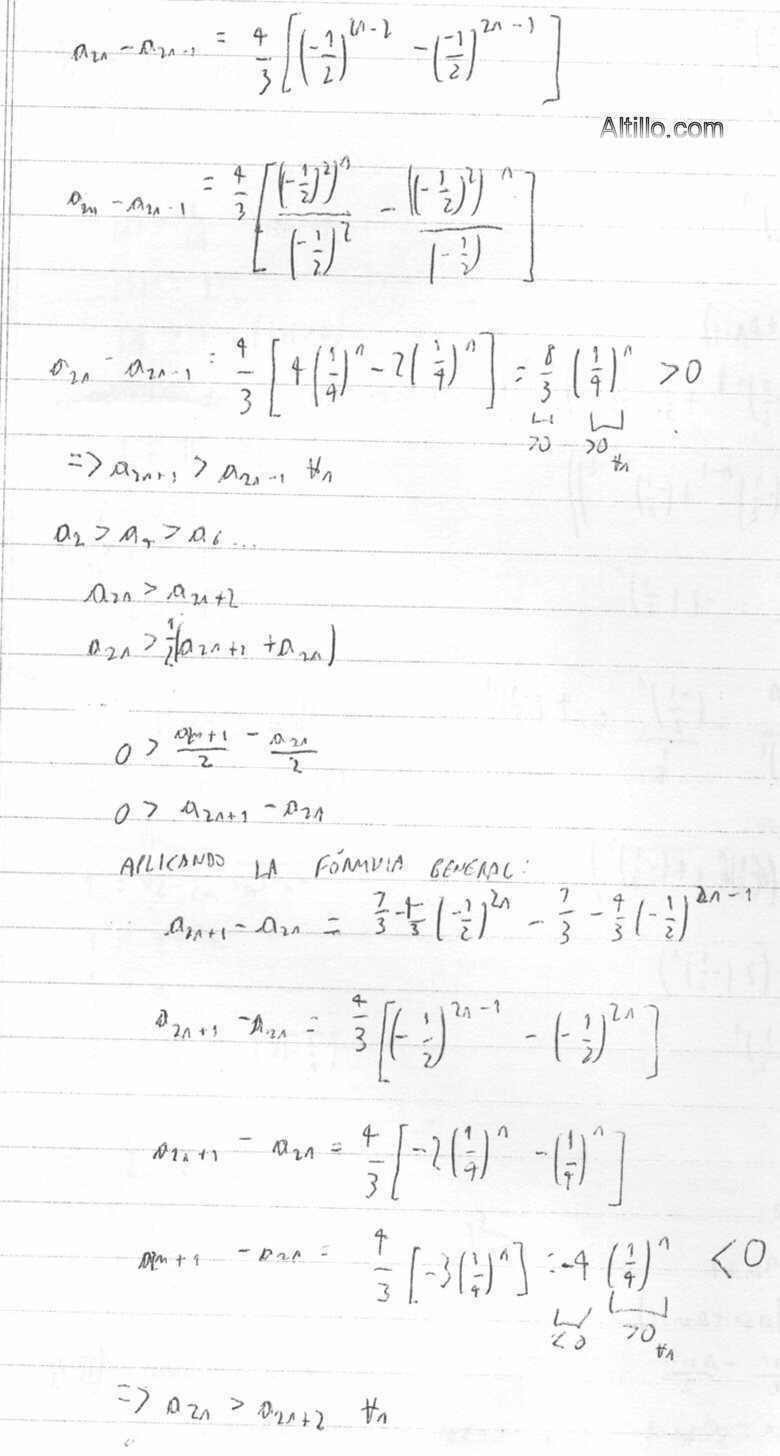 a₂ₙ - a₂ₙ₋₁ = 4/3 [(-1/2)^(2n-2) - (-1/2)^(2n-1)]
Altillo.com
a₂ₙ - a₂ₙ₋₁ = 4/3 [((-1/2)²)ⁿ/(-1/2)² - ((-1/2)²)ⁿ/(-1/2)]
a₂ₙ - a₂ₙ₋₁ = 4/3 [4(1/4)ⁿ - 2(1/4)ⁿ] = 8/3 (1/4)ⁿ > 0
>0 >0 ∀n
=> a₂ₙ₊₁ > a₂ₙ₋₁ ∀n
a₂ > a₄ > a₆ ...
a₂ₙ > a₂ₙ₊₂
a₂ₙ > 1/2(a₂ₙ₊₁ + a₂ₙ)
0 > a₂ₙ₊₁/2 - a₂ₙ/2
0 > a₂ₙ₊₁ - a₂ₙ
APLICANDO LA FÓRMULA GENERAL:
a₂ₙ₊₁ - a₂ₙ = 7/3 - 4/3 (-1/2)^(2n) - 7/3 - 4/3 (-1/2)^(2n-1)
a₂ₙ₊₁ - a₂ₙ = 4/3 [(-1/2)^(2n-1) - (-1/2)^(2n)]
a₂ₙ₊₁ - a₂ₙ = 4/3 [-2(1/4)ⁿ - (1/4)ⁿ]
a₂ₙ₊₁ - a₂ₙ = 4/3 [-3(1/4)ⁿ] = -4 (1/4)ⁿ < 0
<0 >0 ∀n
=> a₂ₙ > a₂ₙ₊₂ ∀n